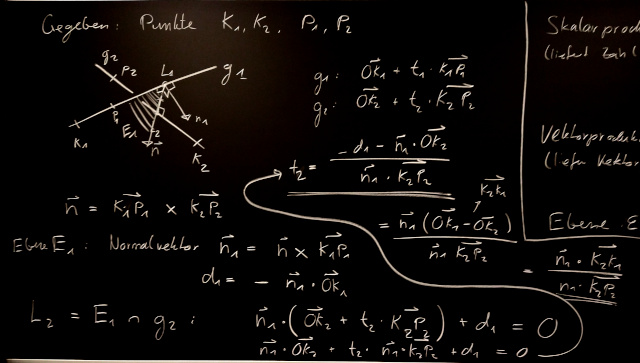 Gegeben: Punkte K₁, K₂, P₁, P₂
g₂
P₂
L₁
g₁
P₁
E₁
L₂
n₁
n⃗
K₁
K₂
g₁: OK₁⃗ + t₁ · K₁P₁⃗
g₂: OK₂⃗ + t₂ · K₂P₂⃗
t₂ = (-d₁ - n⃗₁ · OK₂⃗) / (n⃗₁ · K₂P₂⃗)
K₂K₁⃗
= n⃗₁ (OK₁⃗ - OK₂⃗) / (n⃗₁ K₂P₂⃗)
= (n⃗₁ · K₂K₁⃗) / (n⃗₁ · K₂P₂⃗)
n⃗ = K₁P₁⃗ × K₂P₂⃗
Ebene E₁: Normalvektor n⃗₁ = n⃗ × K₁P₁⃗
d₁ = - n⃗₁ · OK₁⃗
L₂ = E₁ ∩ g₂: n⃗₁ · (OK₂⃗ + t₂ · K₂P₂⃗) + d₁ = 0
n⃗₁ · OK₂⃗ + t₂ · n⃗₁ · K₂P₂⃗ + d₁ = 0
Skalarprod
(liefert Zahl
Vektorproduk
(liefer Vektor
Ebene E